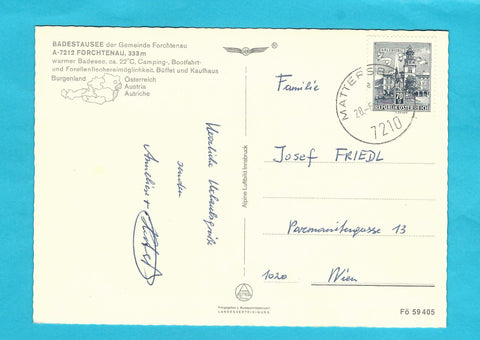 BADESTAUSEE der Gemeinde Forchtenau
A-7212 FORCHTENAU, 333m
warmer Badesee, ca. 22°C, Camping-, Bootfahrt-
und Forellenfischereimöglichkeit, Büffet und Kaufhaus
Burgenland
Österreich
Austria
Autriche
Herzliche Urlaubsgrüße
senden
Anneliese +
Alpine Luftbild Innsbruck
LANDESVERTEIDIGUNG
REPUBLIK ÖSTERREICH
MATTERS
28.
7210
Familie
Josef FRIEDL
Pazmanitengasse 13
1020 Wien
Fö 59405